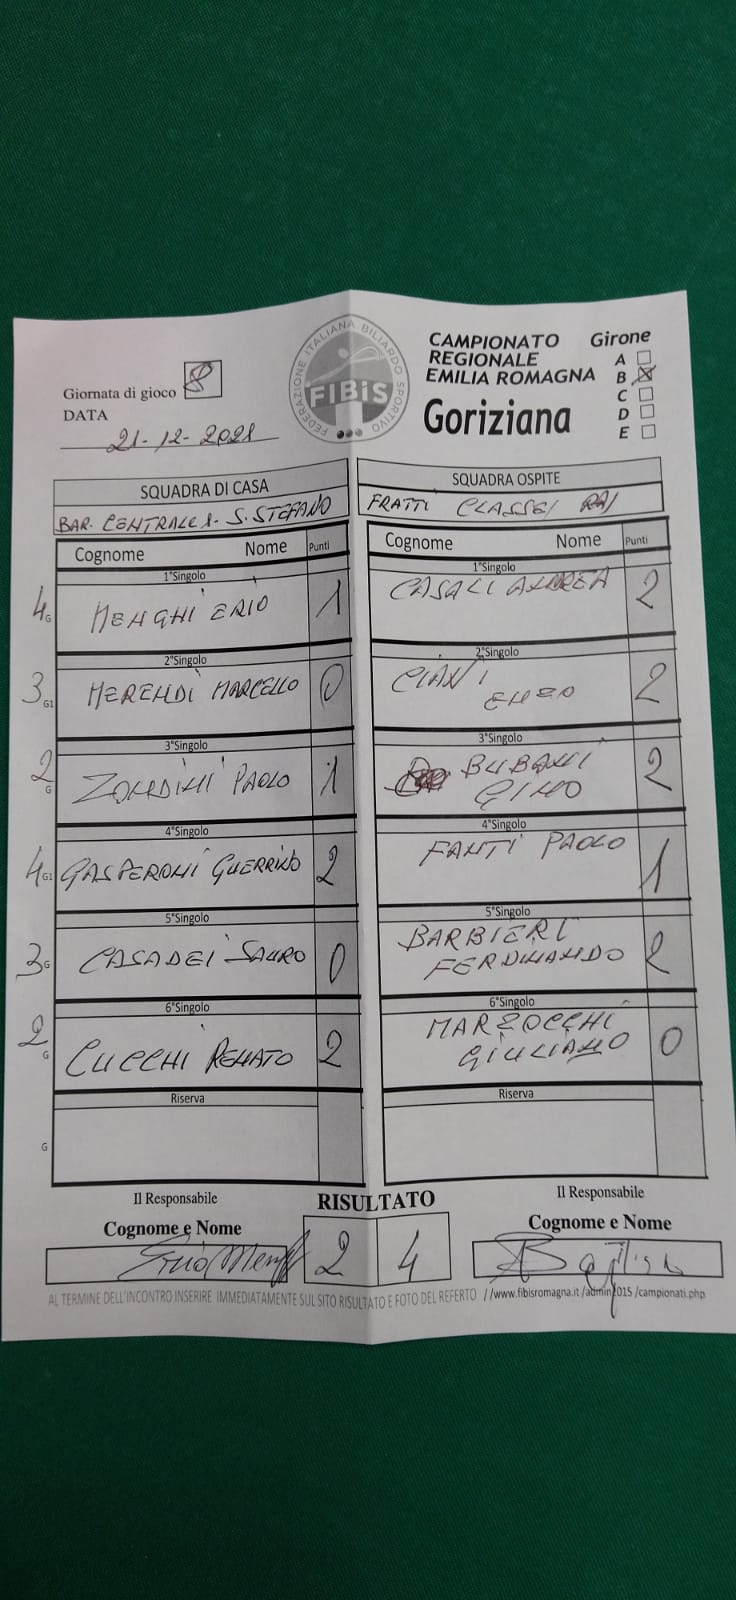 Giornata di gioco 8
DATA
21-12-2021
FEDERAZIONE ITALIANA BILIARDO SPORTIVO
FIBiS
CAMPIONATO
REGIONALE
EMILIA ROMAGNA
Goriziana
Girone
A
B X
C
D
E
SQUADRA DI CASA
BAR. CENTRALE A. S. STEFANO
SQUADRA OSPITE
FRATTI CLASSE RA
Cognome Nome Punti
Cognome Nome Punti
1°Singolo
4 G MENGHI ERIO 1
1°Singolo
CASALI ANDREA 2
2°Singolo
3 G1 MERENDI MARCELLO 0
2°Singolo
CIANI
ENZO 2
3°Singolo
2 G ZONDINI PAOLO 1
3°Singolo
BUBANI
GINO 2
4°Singolo
4 G1 GASPERONI GUERRINO 2
4°Singolo
FANTI PAOLO 1
5°Singolo
3 G CASADEI SAURO 0
5°Singolo
BARBIERI
FERDINANDO 2
6°Singolo
2 G CUCCHI RENATO 2
6°Singolo
MARZOCCHI
GIULIANO 0
Riserva
G
Riserva
Il Responsabile
Cognome e Nome
RISULTATO
2 4
Il Responsabile
Cognome e Nome
AL TERMINE DELL'INCONTRO INSERIRE IMMEDIATAMENTE SUL SITO RISULTATO E FOTO DEL REFERTO //www.fibisromagna.it /admin2015 /campionati.php